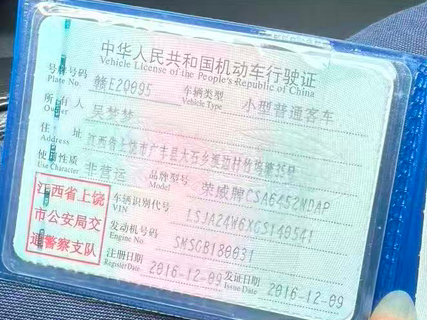 中华人民共和国机动车行驶证
Vehicle License of the People's Republic of China
号牌号码 Plate No. 赣E20095 车辆类型 Vehicle Type 小型普通客车
所有人 Owner 吴梦梦
住址 Address 江西省上饶市广丰县大石乡
使用性质 Use Character 非营运 品牌型号 Model 荣威牌CSA6452NDAP
江西省上饶市公安局交通警察支队
车辆识别代号 VIN
发动机号码 Engine No. SMSGB180031
注册日期 Register Date 2016-12-09 发证日期 Issue Date 2016-12-09